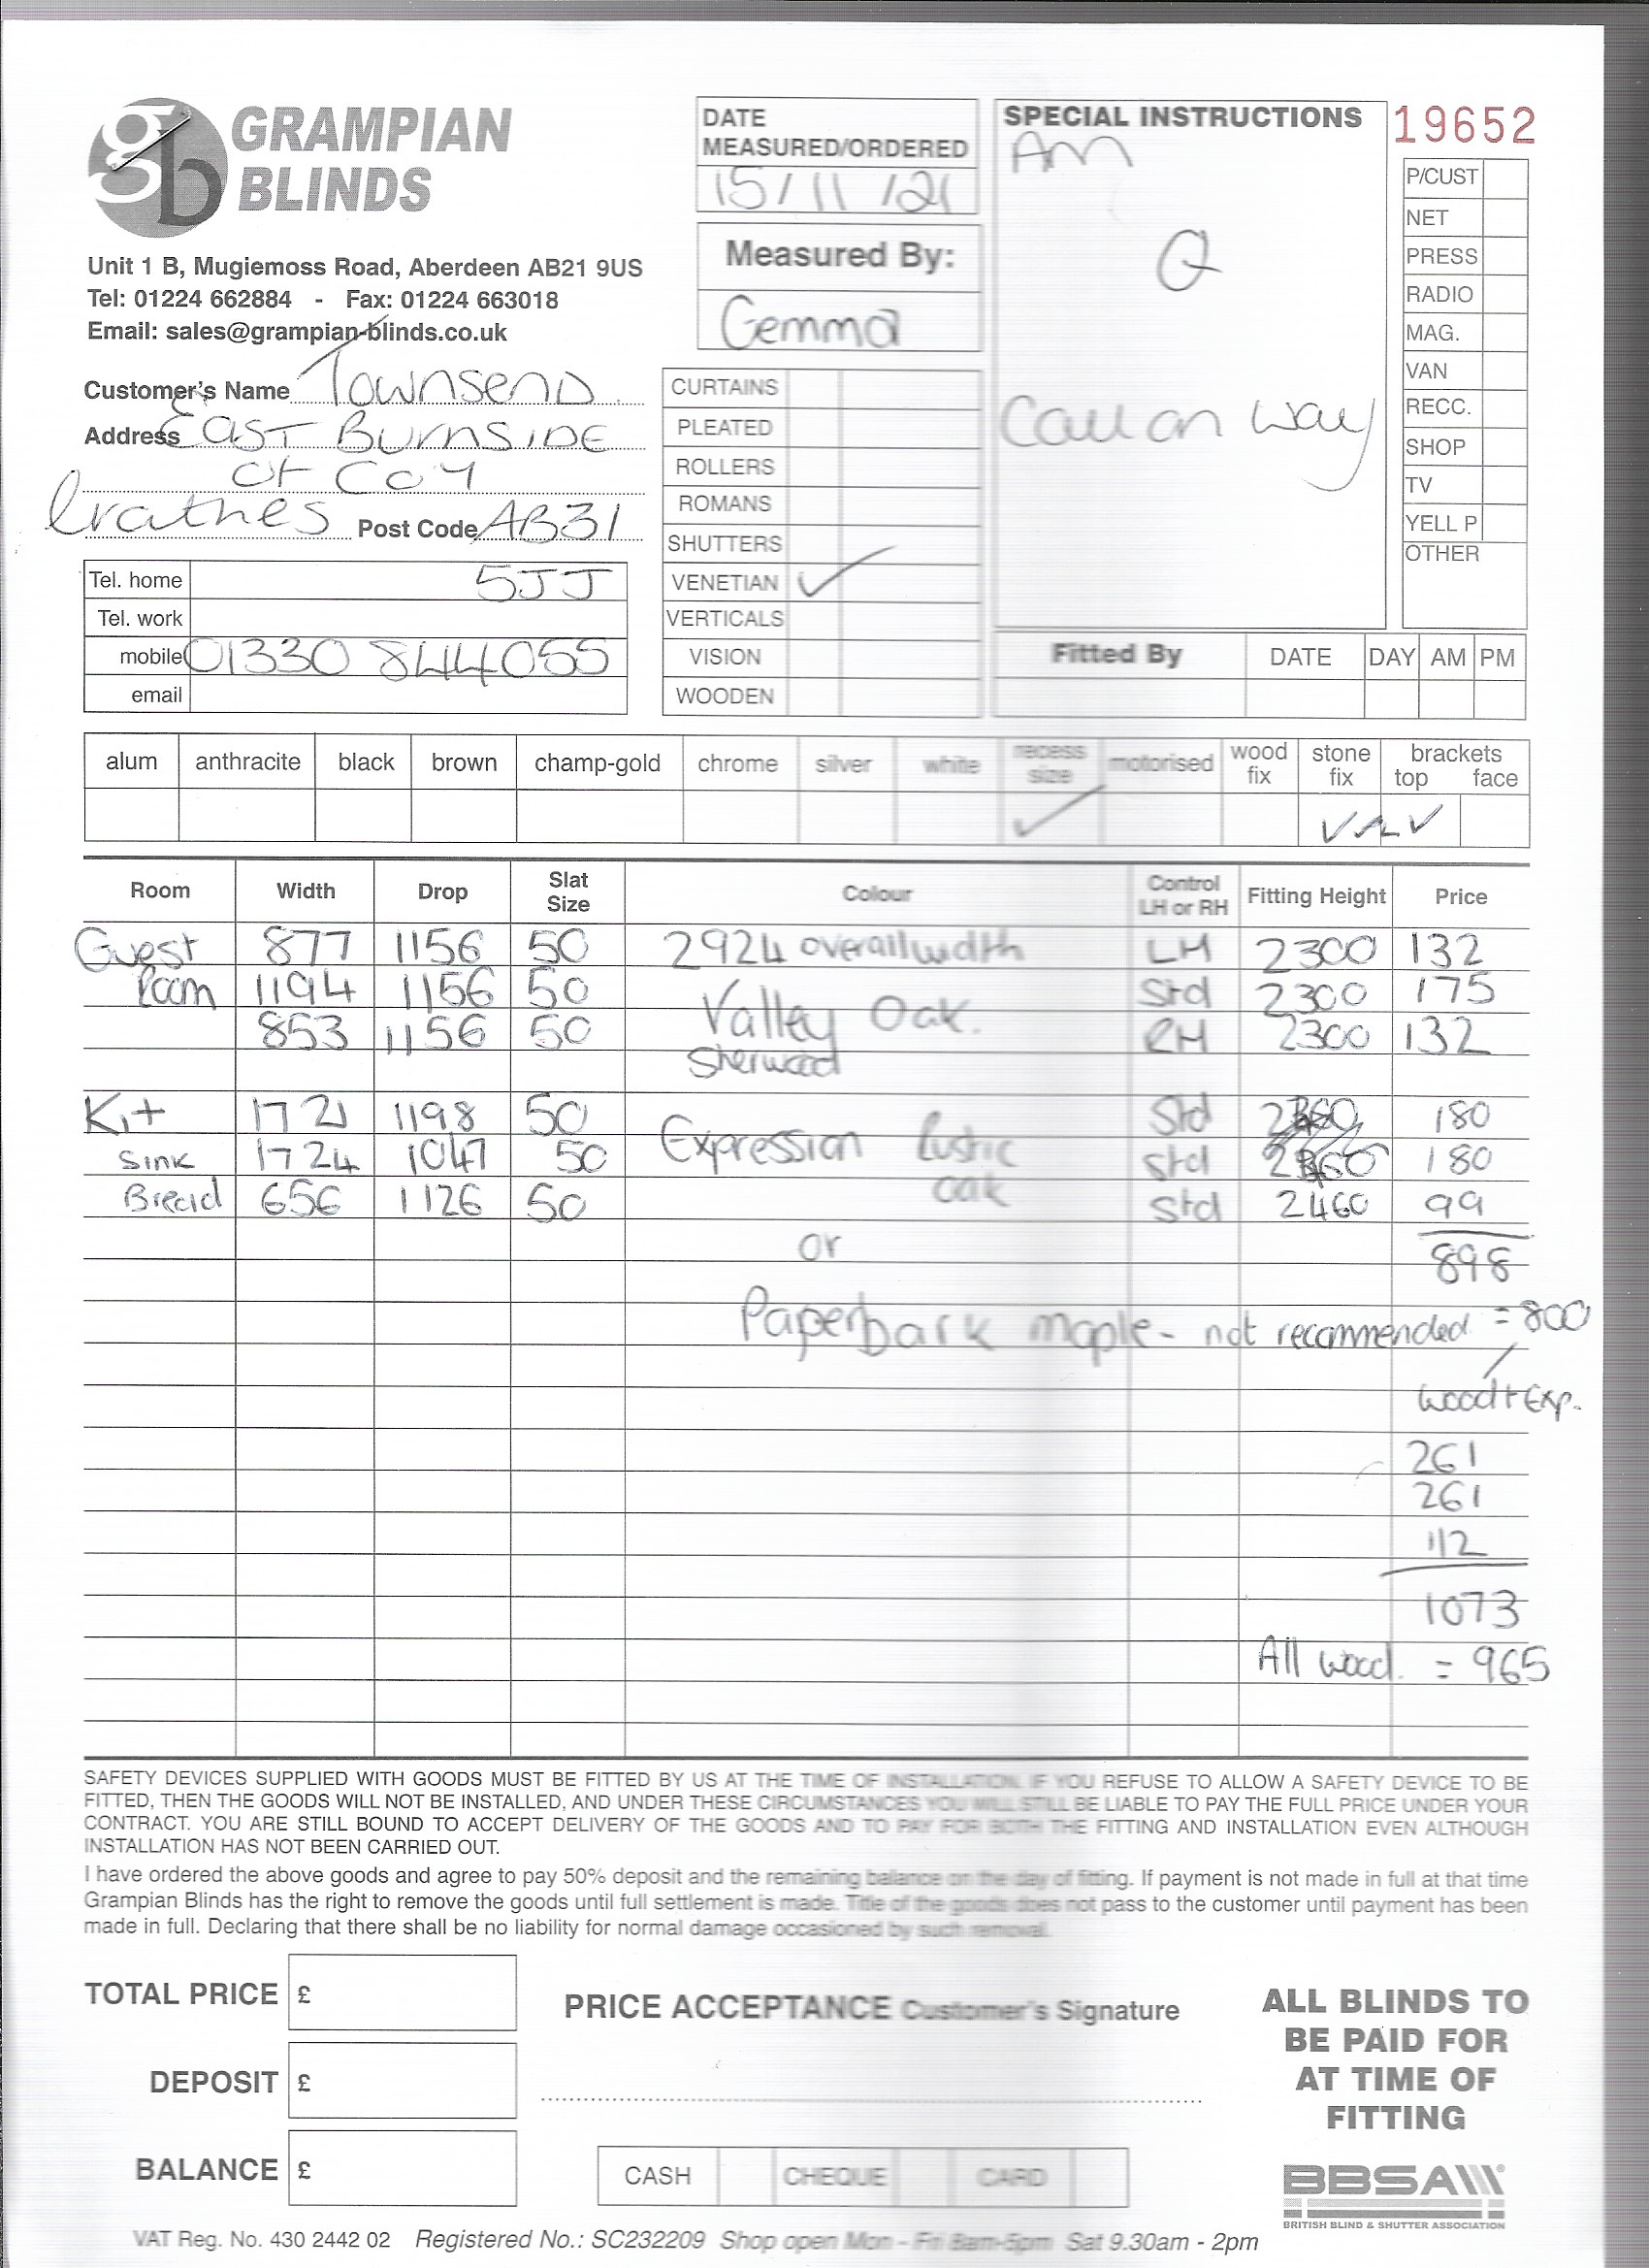 GRAMPIAN
BLINDS
Unit 1 B, Mugiemoss Road, Aberdeen AB21 9US
Tel: 01224 662884 - Fax: 01224 663018
Email: sales@grampian-blinds.co.uk
DATE
MEASURED/ORDERED
15/11/21
Measured By:
Gemma
SPECIAL INSTRUCTIONS
AM
Q
Call on way
19652
P/CUST
NET
PRESS
RADIO
MAG.
VAN
RECC.
SHOP
TV
YELL P
OTHER
Customer's Name Townsend
Address East Burnside
of Coy
Crathes Post Code AB31
Tel. home 5JJ
Tel. work
mobile 01330 844055
email
CURTAINS
PLEATED
ROLLERS
ROMANS
SHUTTERS
VENETIAN ✓
VERTICALS
VISION
WOODEN
Fitted By DATE DAY AM PM
alum anthracite black brown champ-gold chrome silver white recess size motorised wood fix stone fix brackets top face
Room Width Drop Slat Size Colour Control LH or RH Fitting Height Price
Guest 877 1156 50 2924 overall width LH 2300 132
Room 1194 1156 50 Valley Oak. Std 2300 175
853 1156 50 Sherwood RH 2300 132
Kit 1721 1198 50 Expression Rustic Std 180
Sink 1724 1047 50 oak Std 180
Bread 656 1126 50 Std 2460 99
or 898
Paperbark maple - not recommended = 800
wood + Exp.
261
261
112
1073
All wood. = 965
SAFETY DEVICES SUPPLIED WITH GOODS MUST BE FITTED BY US AT THE TIME OF INSTALLATION. IF YOU REFUSE TO ALLOW A SAFETY DEVICE TO BE
FITTED, THEN THE GOODS WILL NOT BE INSTALLED, AND UNDER THESE CIRCUMSTANCES YOU WILL STILL BE LIABLE TO PAY THE FULL PRICE UNDER YOUR
CONTRACT. YOU ARE STILL BOUND TO ACCEPT DELIVERY OF THE GOODS AND TO PAY FOR BOTH THE FITTING AND INSTALLATION EVEN ALTHOUGH
INSTALLATION HAS NOT BEEN CARRIED OUT.
I have ordered the above goods and agree to pay 50% deposit and the remaining balance on the day of fitting. If payment is not made in full at that time
Grampian Blinds has the right to remove the goods until full settlement is made. Title of the goods does not pass to the customer until payment has been
made in full. Declaring that there shall be no liability for normal damage occasioned by such removal.
TOTAL PRICE £
DEPOSIT £
BALANCE £
PRICE ACCEPTANCE Customer's Signature
CASH CHEQUE CARD
ALL BLINDS TO
BE PAID FOR
AT TIME OF
FITTING
BBSA
BRITISH BLIND & SHUTTER ASSOCIATION
VAT Reg. No. 430 2442 02 Registered No.: SC232209 Shop open Mon - Fri 8am-5pm Sat 9.30am - 2pm